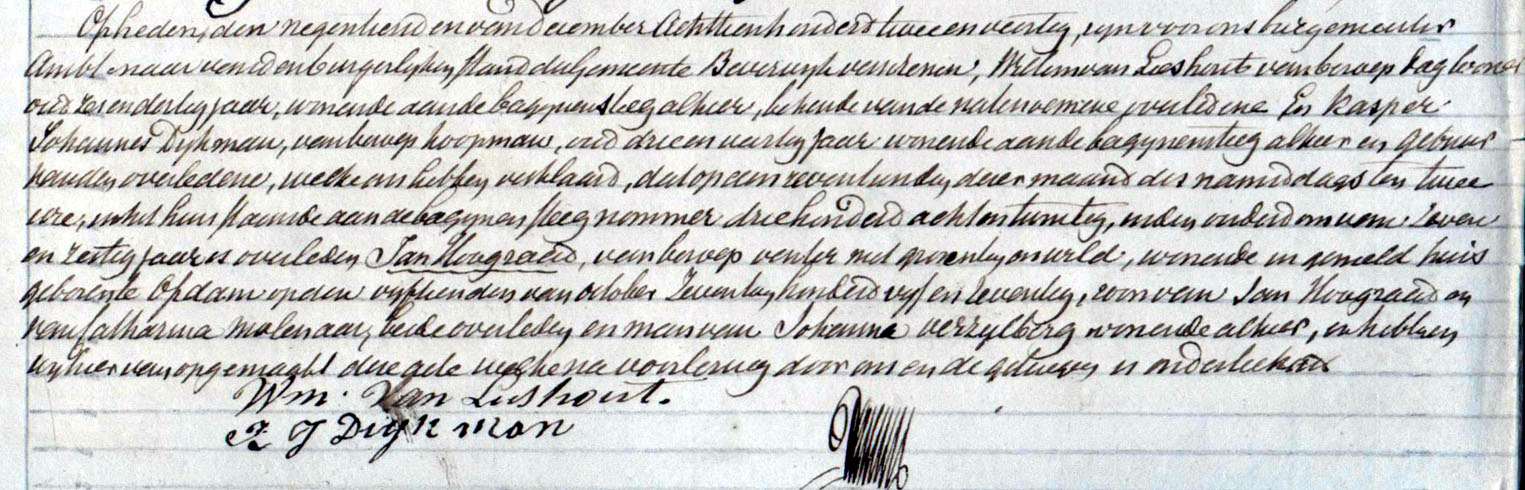 Opheden, den negentienden van december Achttienhonderd twee en veertig, zyn voor ons burgemeester
Ambtenaar van den burgerlyken stand der Gemeente Beverwyk verschenen, Willem van Lieshout van beroep dagloner
oud zes en dertig jaar, wonende aan de bagynensteeg alhier, bekende van de natenoemene overledene En Kasper
Johannes Dykman, van beroep koopman, oud drie en veertig jaar wonende aan de bagynensteeg alhier en gebuur
van den overledene, welke ons hebben verklaard, dat op den zeventienden dezer maand des namiddags ten twee
ure, in het huis staande aan de bagynensteeg nommer driehonderd acht en twintig, in den ouderdom van Zeven
en zestig jaar is overleden Jan Hoograad, van beroep venter met groenten, wonende in gemeld huis
geboren te Opdam op den vyftienden van october Zeventienhonderd vyf en Zeventig, zoon van Jan Hoograad en
van Catharina Molenaar, beide overleden en man van Johanna Verzylberg wonende alhier, en hebben
wy hier van opgemaakt deze acte welke na voorlezing door ons en de getuigen is onderteekend
Wm. Van Lieshout.
K J Dijkman